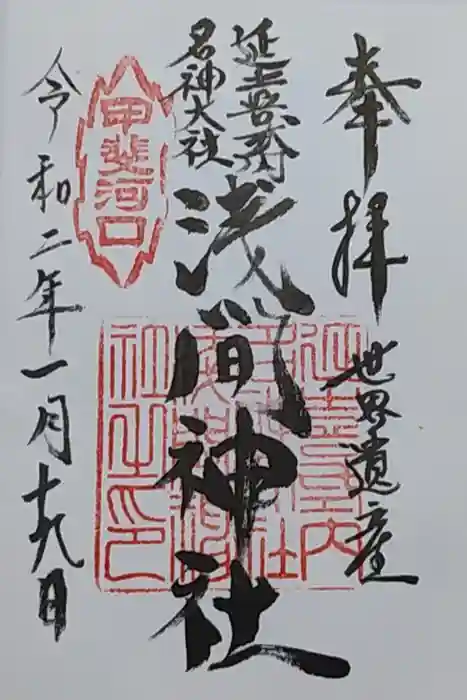 奉拝
世界遺産
延喜式内
名神大社
浅間神社
甲斐河口
令和二年一月十九日